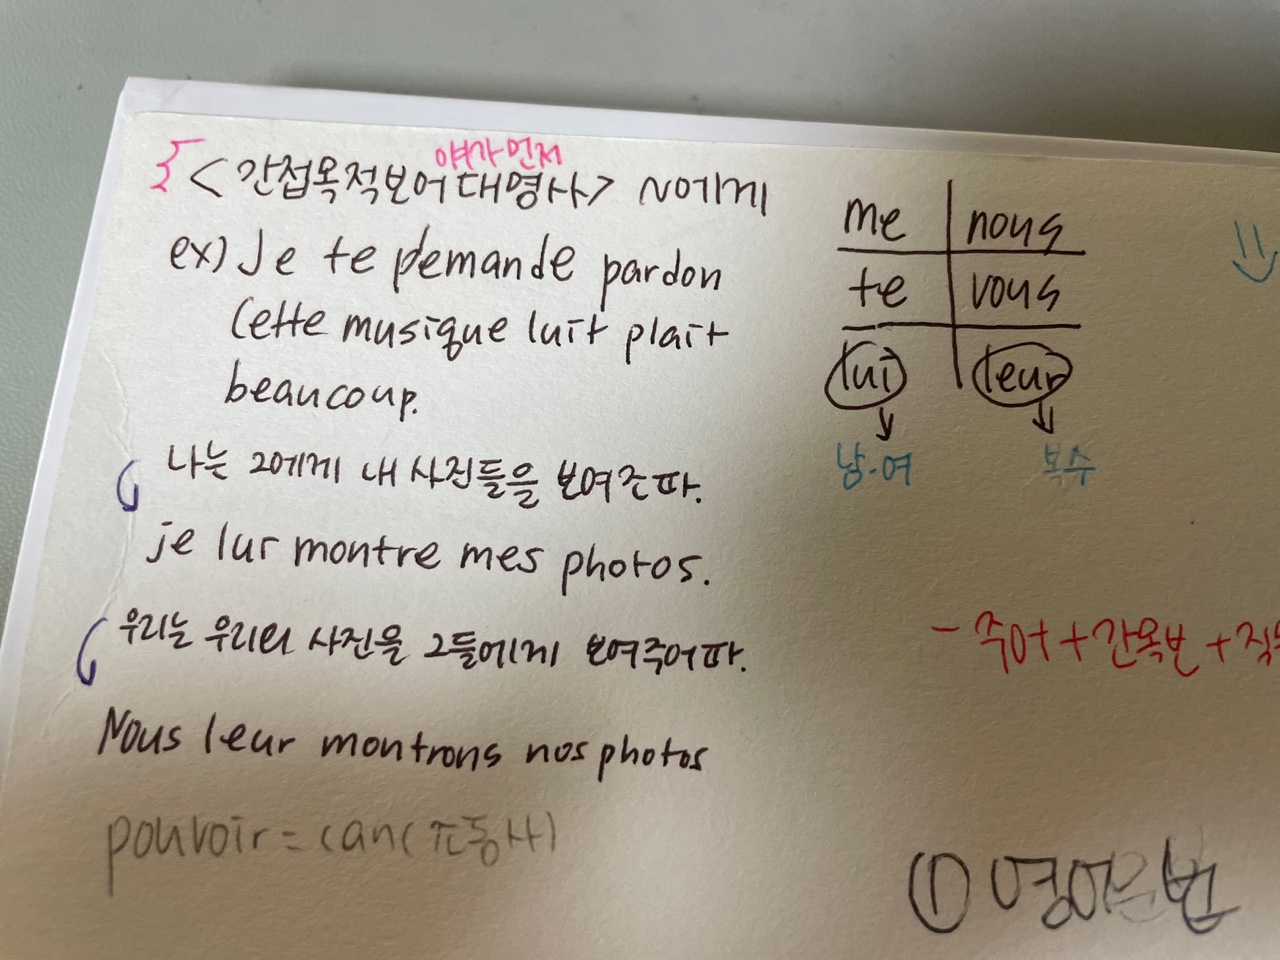 얘가 먼저
<간접목적보어대명사> ~에게
ex) Je te demande pardon
Cette musique luit plait
beaucoup.
나는 그에게 내 사진들을 보여준다.
je lur montre mes photos.
우리는 우리의 사진을 그들에게 보여주어다.
Nous leur montrons nos photos
pouvoir = can(조동사)
me nous
te vous
lui leur
남·여 복수
- 주어 + 간목보 + 직
① 영어